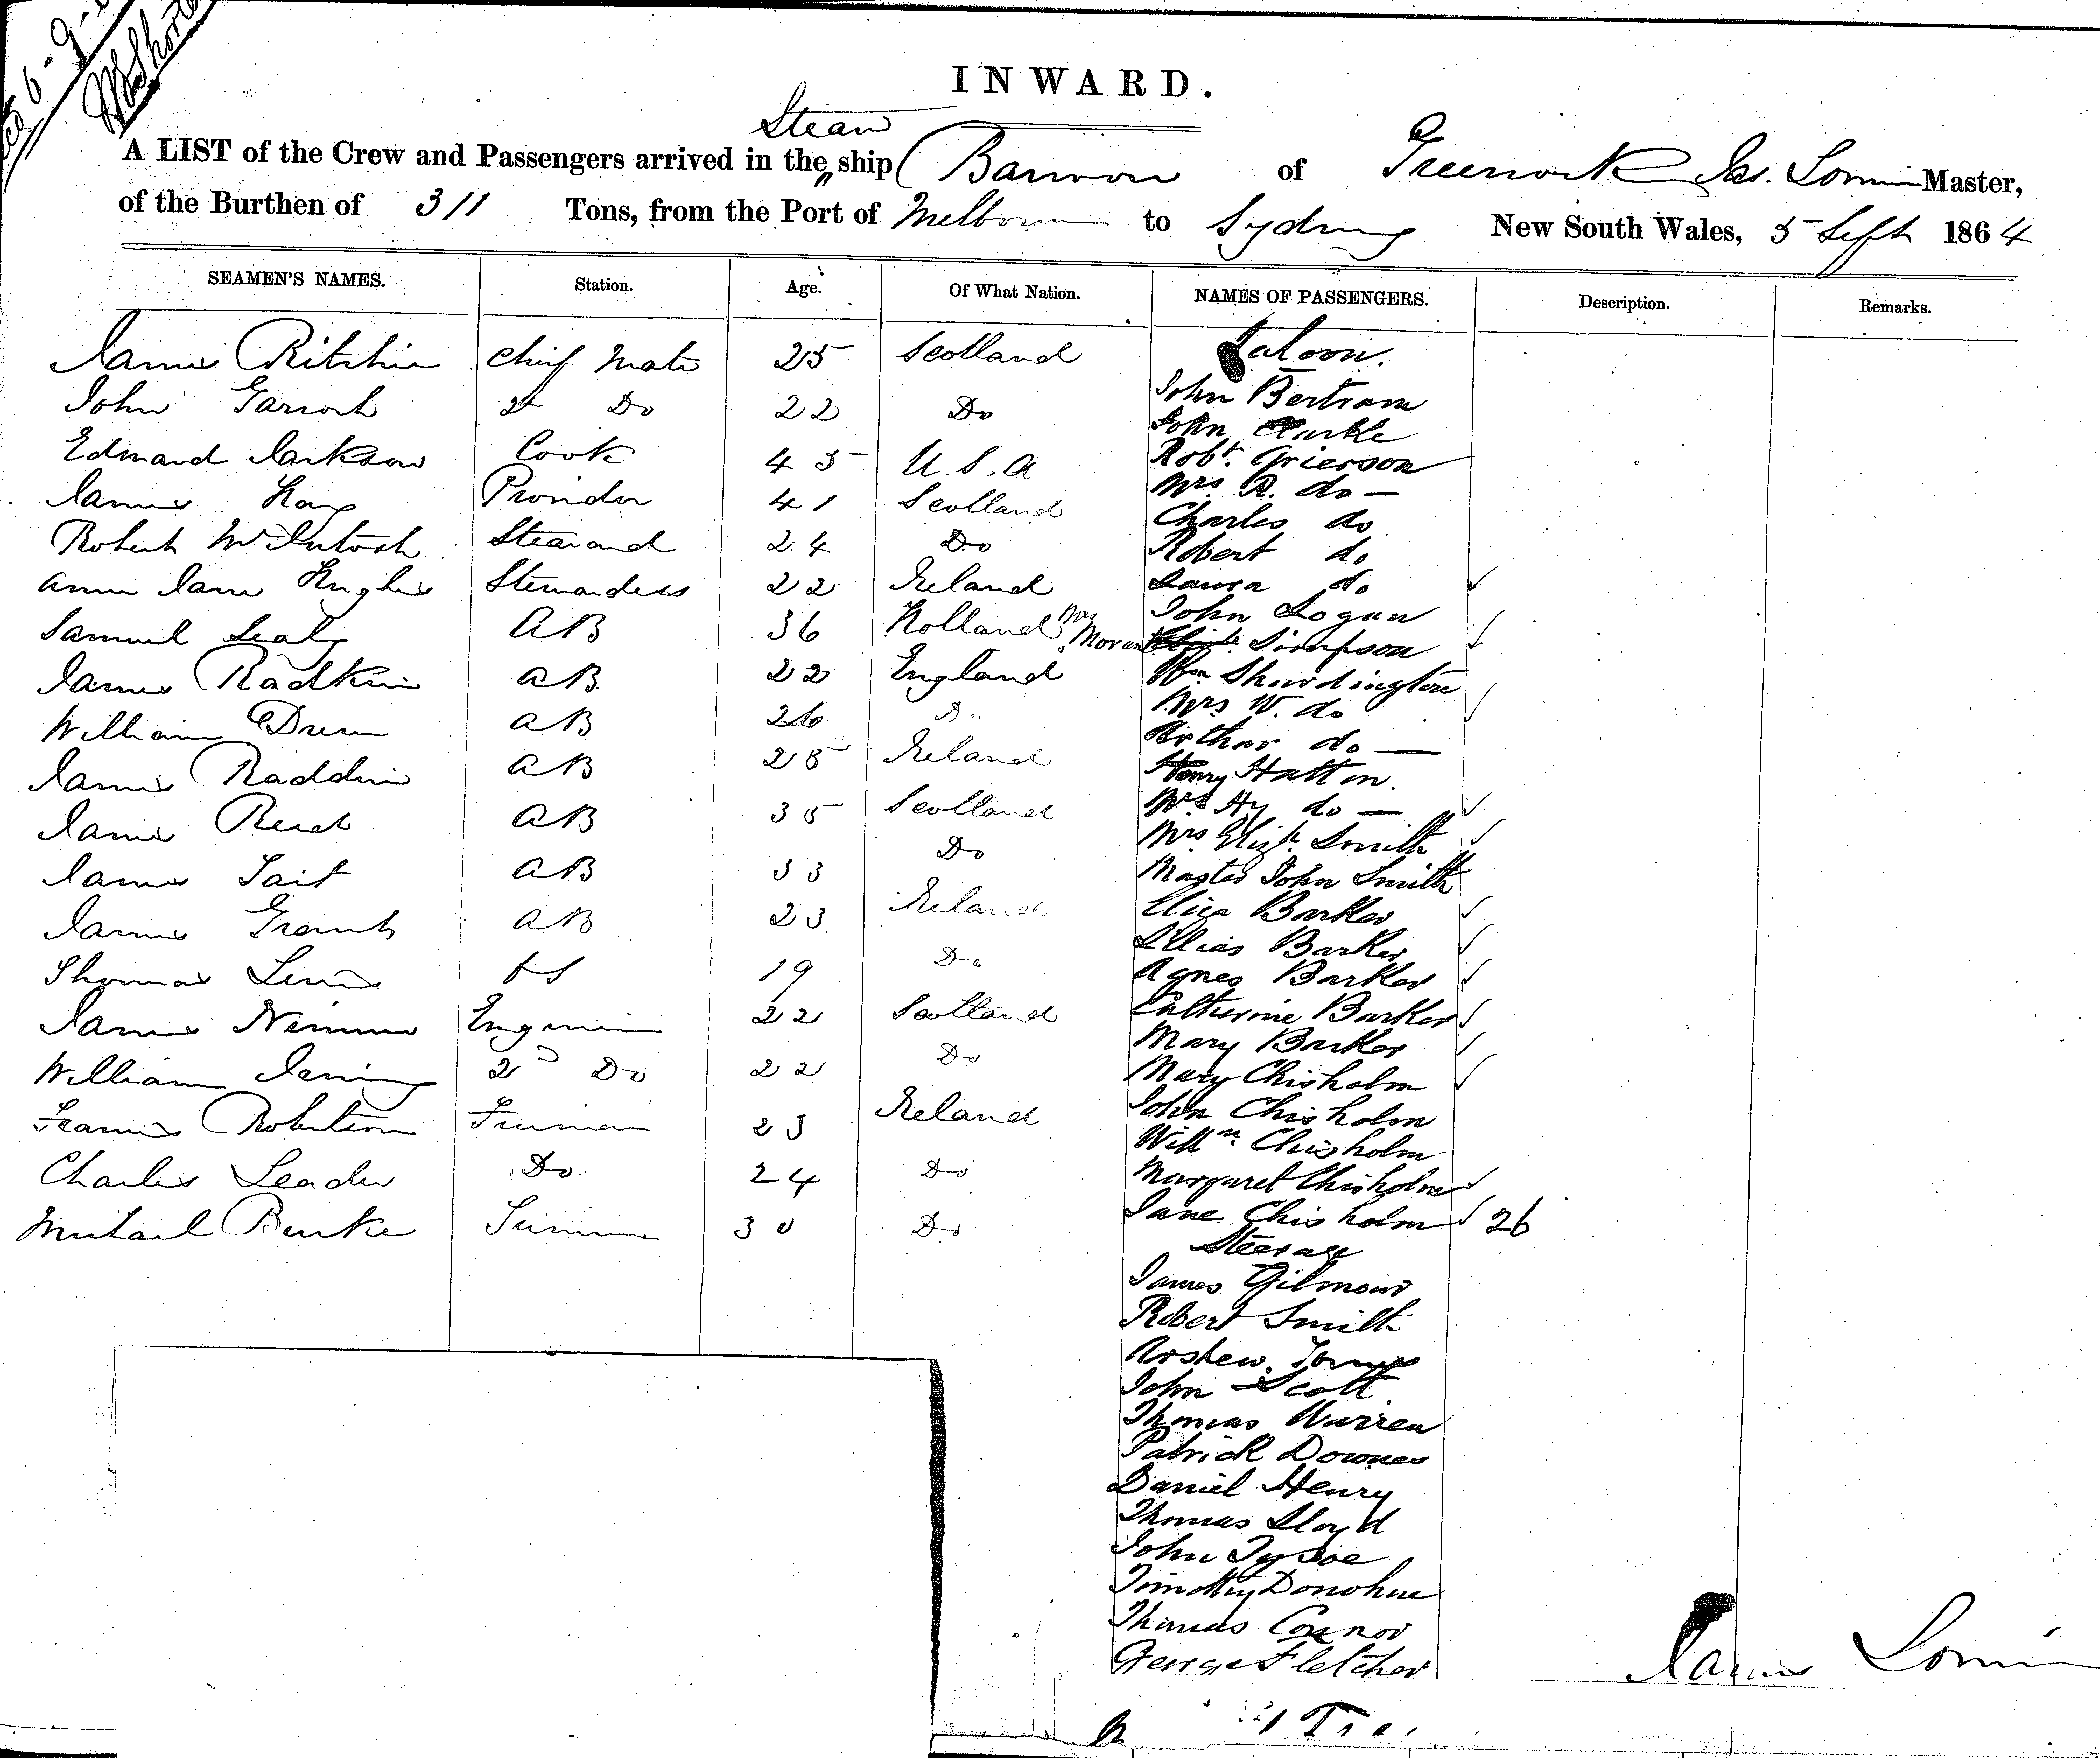 INWARD.
Steam
A LIST of the Crew and Passengers arrived in the „ ship ( Barwon of Greenock Jas. Lorimer Master,
of the Burthen of 311 Tons, from the Port of Melbourne to Sydney New South Wales, 5 Sept 1864
SEAMEN'S NAMES. Station. Age. Of What Nation. NAMES OF PASSENGERS. Description. Remarks.
James Ritchie Chief Mate 25 Scotland
John Garroch 2d Do 22 Do
Edward Jackson Cook 45 U.S.A
James Kay Provider 41 Scotland
Robert McIntosh Steward 24 Do
Anne Jane Hughes Stewardess 22 Ireland
Samuel Sealy AB 36 Holland
James Radkin AB 22 England
William Drew AB 26 Do
James Raddin AB 28 Ireland
James Reid AB 35 Scotland
James Tait AB 33 Do
James Grant AB 23 Ireland
Thomas Lewis OS 19 Do
James Nimmo Engineer 22 Scotland
William 2d Do 22 Do
Francis Robertson Fireman 23 Ireland
Charles Leader Do 24 Do
Michael Burke Trimmer 30 Do
Saloon.
John Bertram
John Clarke
Robt. Grierson
Mrs R. do —
Charles do
Robert do
Laura do
John Logan
Simpson
Wm Shordington
Mrs W. do
Arthur do —
Henry Hatton.
Mrs Hy do —
Mrs Elizh. Smith
Master John Smith
Eliza Barker
Lilias Barker
Agnes Barker
Catherine Barker
Mary Barker
Mary Chisholm
John Chisholm
Willm Chisholm
Margaret Chisholm
Jane Chisholm 26
Steerage
James Gilmour
Robert Smith
Andrew
John Scott
Thomas Warren
Patrick Downes
Daniel Henry
Thomas Lloyd
John Tysoe
Timothy Donohue
Thomas Connor
George Fletcher
James Lorimer